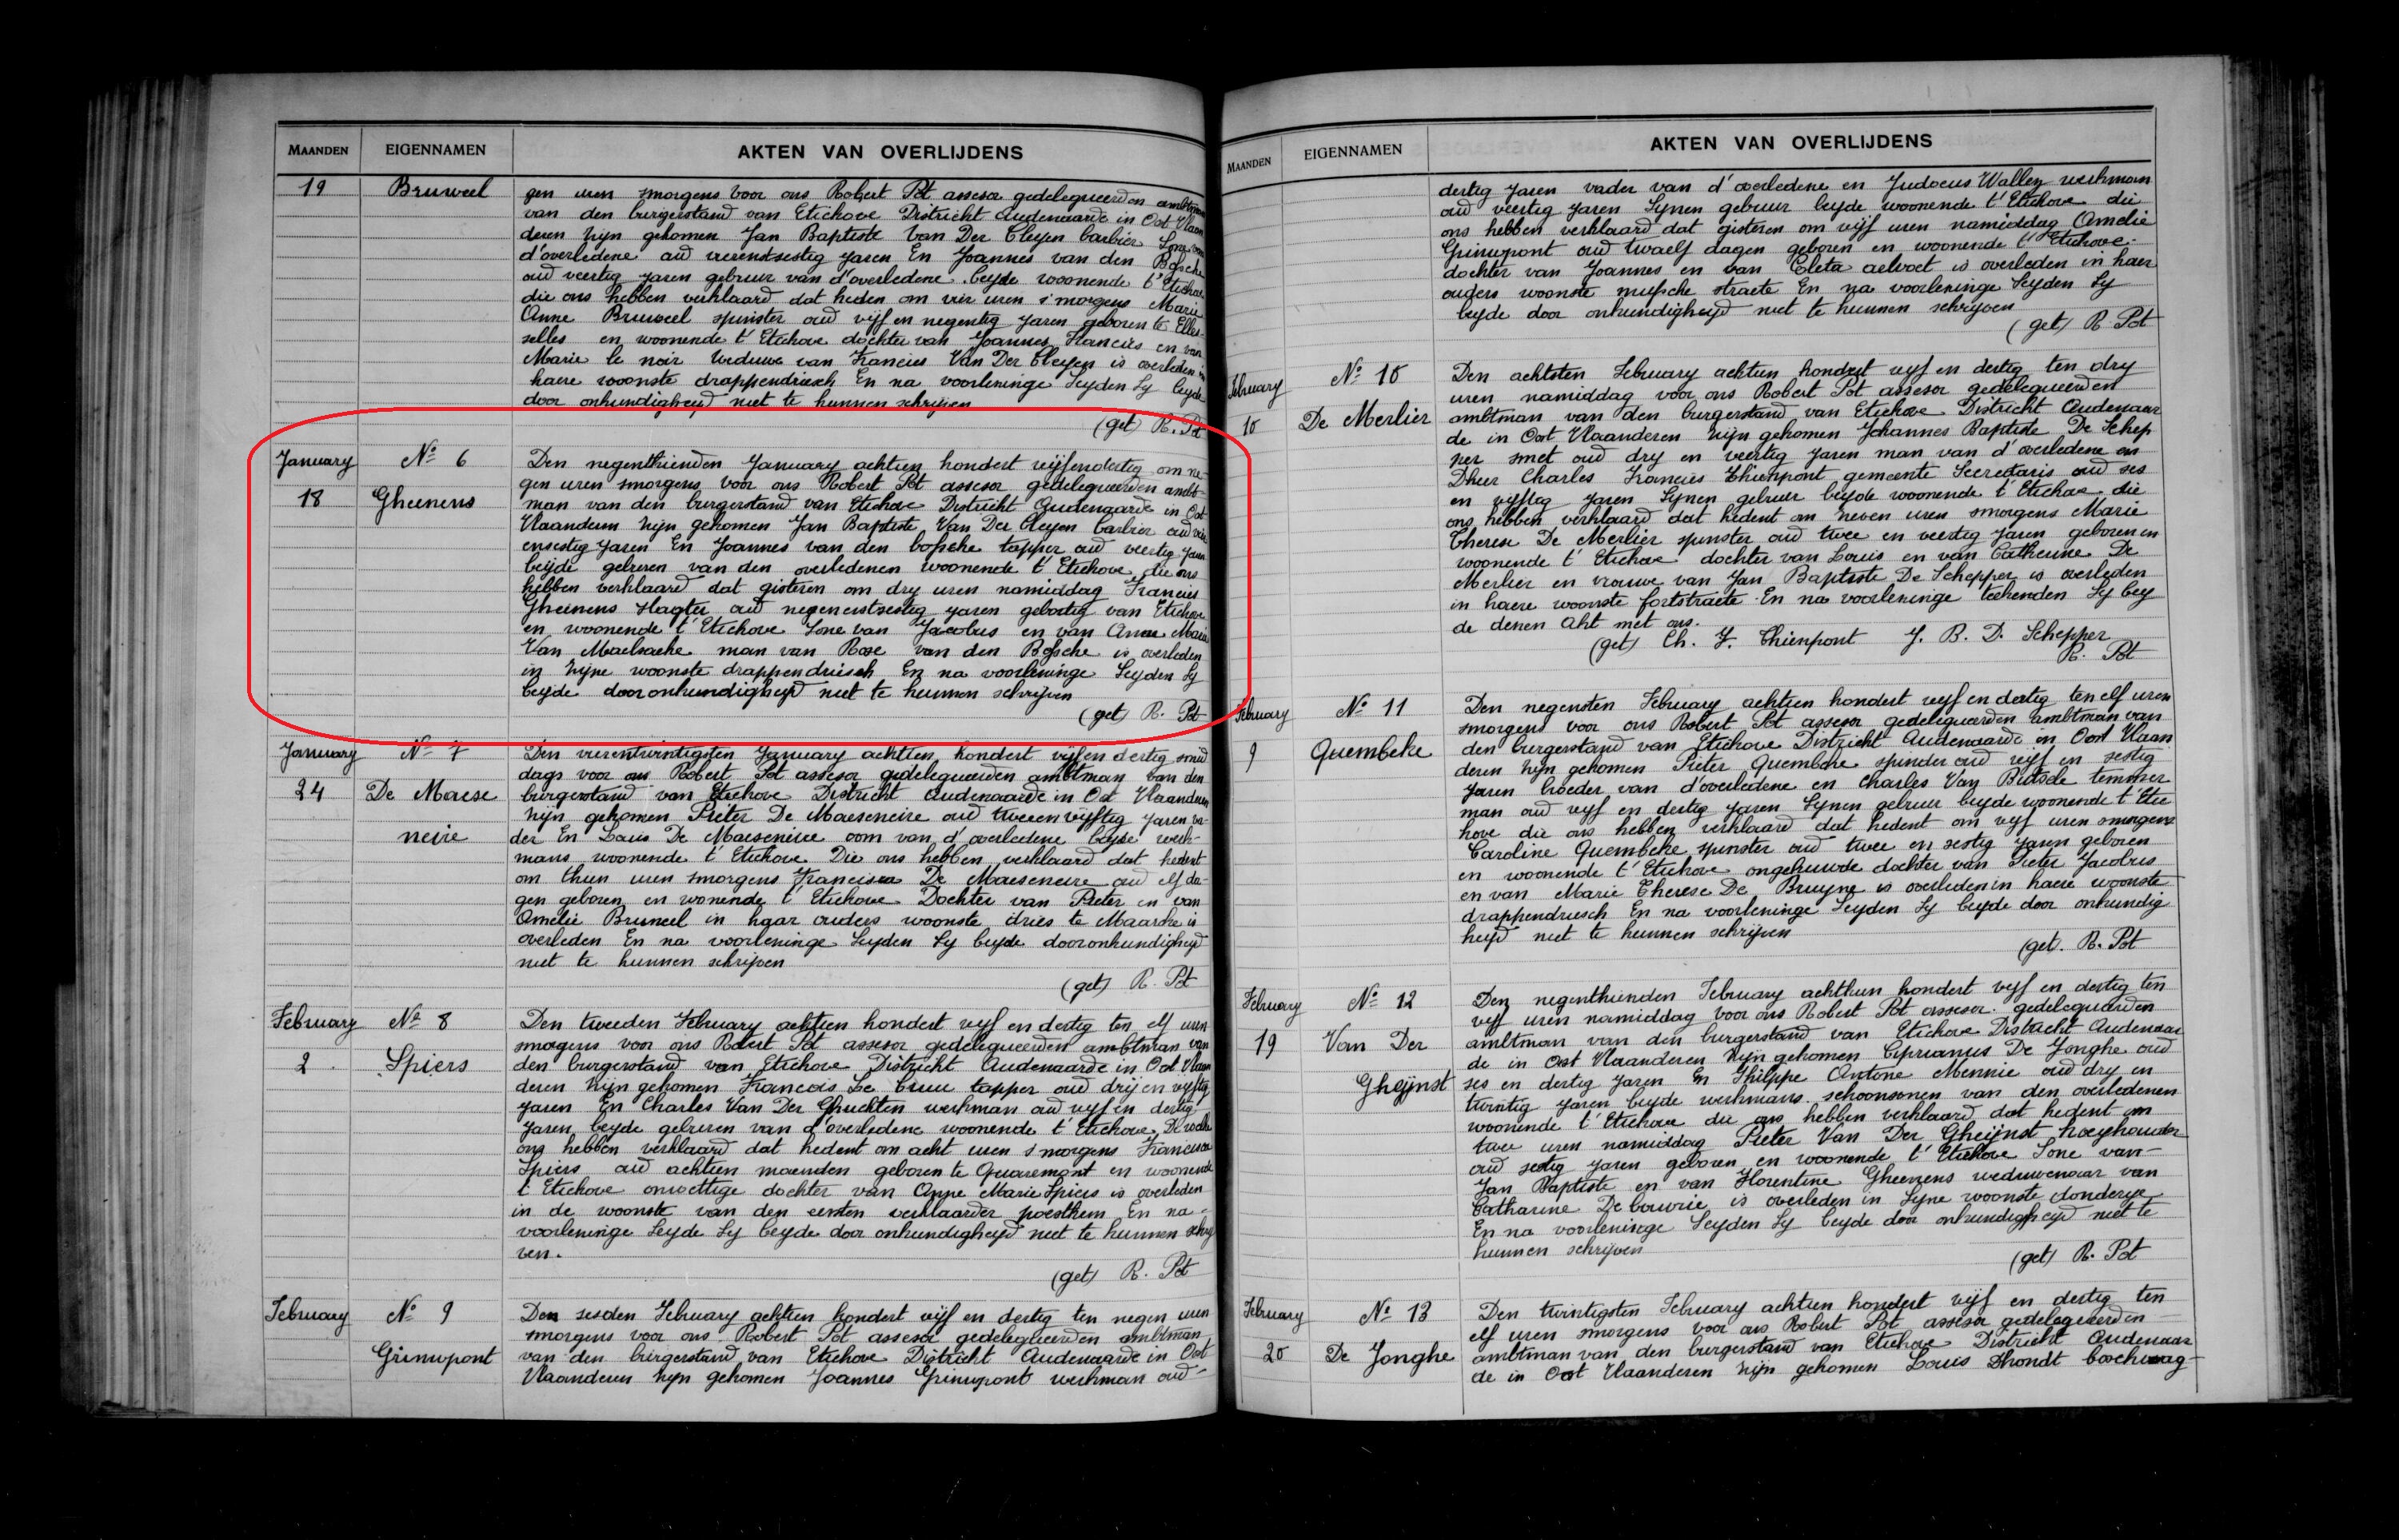 MAANDEN EIGENNAMEN AKTEN VAN OVERLIJDENS
19 Bruweel gen uren smorgens voor ons Robert Pot assesor gedelegueerden ambtman
van den burgerstand van Etichove District Audenaarde in Oost Vlaan
deren zijn gekomen Jan Baptiste Van Der Cleyen barbier Sone van
d'overledene oud vierenstsestig jaren En Joannes van den Bossche
oud veertig jaren gebuer van d'overledene beyde woonende t'Etichove
die ons hebben verklaard dat heden om vier uren s'morgens Marie
Anne Bruweel spinster oud vijf en negentig jaren geboren te Elles-
selles en woonende t'Etichove dochter van Joannes Francies en van
Marie le noir Weduwe van Francies Van Der Cleyen is overleden in
haere woonste drappendriesch En na voorleninge Seyden Sy beyde
door onkundigheyd niet te kunnen schrijven
(get) R. Pot
January No 6 Den negenthienden January achtien hondert vijfendertig om ne-
18 Gheenens gen uren smorgens voor ons Robert Pot assesor gedelegueerden ambt-
man van den burgerstand van Etichove District Audenaarde in Ost
Vlaanderen zijn gekomen Jan Baptiste Van Der Cleyen barbier oud vier
ensestig jaren En Joannes van den bossche tapper oud veertig jaren
beijde gebueren van den overledenen woonende t'Etichove die ons
hebben verklaard dat gisteren om dry uren namiddag Francies
Gheenens Slagter oud negenenstsestig jaren gebortig van Etichove
en woonende t'Etichove Sone van Jacobus en van Anne Marie
Van Maelsacke man van Rose van den Bossche is overleden
in zijne woonste drappendriesch En na voorleninge Seyden Sy
beyde door onkundigheyd niet te kunnen schrijven
(get) R. Pot
January No 7 Den vierentwintigsten January achttien hondert vijfen dertig smid
24 De Maese dags voor ons Robert Pot assesor gedelegueerden ambtman van den
burgerstand van Etichove District Audenaarde in Ost Vlaanderen
zijn gekomen Pieter De Maeseneire oud tweeenvyftig jaren va-
neire der En Louis De Maeseneire oom van d'overledene beyde werk-
mans woonende t'Etichove Die ons hebben verklaard dat hedent
om thien uren smorgens Francisca De Maeseneire oud elf da-
gen geboren en wonende t'Etichove Dochter van Pieter en van
Amelie Bruneel in haar ouders woonste dries te Maarcke is
overleden En na voorleninge Seyden Sy beyde door onkundigheyd
niet te kunnen schrijven
(get) R. Pot
February No 8 Den tweeden February achtien hondert vyf en dertig ten elf uren
smorgens voor ons Robert Pot assesor gedelegueerden ambtman van
2 Spiers den burgerstand van Etichove District Audenaarde in Oot Vlaan
deren zijn gekomen Francois Le bruu tapper oud drij en vyftig
jaren En Charles Van Der Ghuchten werkman oud vyf en dertig
jaren beyde gebueren van d'overledene woonende t'Etichove De welke
ons hebben verklaard dat hedent om acht uren s'morgens Francisca
Spiers oud achtien maenden geboren te Quaremont en woonende
t'Etichove onwettige dochter van Anne Marie Spiers is overleden
in de woonste van den eersten verklaarder poesthem En na-
voorleninge Seyde Sy beyde door onkundigheyd niet te kunnen schry
ven.
(get) R. Pot
February No 9 Den sesden February achtien hondert vijf en dertig ten negen uren
smorgens voor ons Robert Pot assesor gedelegueerden ambtman
Grinwpont van den burgerstand van Etichove District Audenaarde in Ost
Vlaanderen zyn gekomen Joannes Grinwpont werkman oud
MAANDEN EIGENNAMEN AKTEN VAN OVERLIJDENS
dertig jaren vader van d'overledene en Judocus Walley werkman
oud veertig jaren Synen gebuur beyde woonende t'Etichove die
ons hebben verklaard dat gisteren om vijf uren namiddag Amelie
Grinwpont oud twaelf dagen geboren en woonende t'Etichove
dochter van Joannes en van Coleta aelvoet is overleden in haer
ouders woonste mussche straete En na voorleninge Seyden Sy
beyde door onkundigheyd niet te kunnen schrijven
(get) R Pot
February No 10 Den achtsten February achtien hondert vyf en dertig ten dry
uren namiddag voor ons Robert Pot assesor gedelegueerden
10 De Merlier ambtman van den burgerstand van Etichove District Audenaar
de in Oost Vlaanderen zijn gekomen Johannes Baptiste De Schep
per smet oud dry en veertig jaren man van d'overledene en
Dheer Charles Francies Thienpont gemeente Secretaris oud ses
en vyftig jaren Synen gebuer beyde woonende t'Etichove die
ons hebben verklaard dat hedent om zeven uren smorgens Marie
Therese De Merlier spinster oud twee en veertig jaren geboren en
woonende t'Etichove dochter van Louis en van Catherine De
Merlier en vrouwe van Jan Baptiste De Schepper is overleden
in haere woonste fortstraete En na voorleninge teekenden Sy bey
de denen Akt met ons.
(get) Ch. F. Thienpont J. B. D. Schepper
R. Pot
February No 11 Den negensten February achtien hondert vyf en dertig ten elf uren
smorgens voor ons Robert Pot assesor gedelegueerden ambtman van
9 Quembeke den burgerstand van Etichove District Audenaarde in Oost Vlaan
deren zijn gekomen Pieter Quembeke spinder oud vijf en sestig
jaren broeder van d'overledene en Charles Van Butsele temmer
man oud vyf en dertig jaren Synen gebuer beyde woonende t'Etic
hove die ons hebben verklaard dat hedent om vyf uren smorgens
Caroline Quembeke spinster oud twee en sestig jaren geboren
en woonende t'Etichove ongehuwde dochter van Pieter Jacobus
en van Marie Therese De Bruyne is overleden in haere woonste
drappendriesch En na voorleninge Seyden Sy beyde door onkundig
heyd niet te kunnen schrijven
(get. R. Pot
February No 12 Den negenthienden February achthien hondert vyf en dertig ten
vyf uren namiddag voor ons Robert Pot assesor gedelegueerden
19 Van Der ambtman van den burgerstand van Etichove District Audenaar
de in Oost Vlaanderen zijn gekomen Ciprianus De Jonghe oud
Gheijnst ses en dertig jaren En Philippe Antone Mennie oud dry en
twintig jaren beyde werkmans schoonsonen van den overledenen
woonende t'Etichove die ons hebben verklaard dat hedent om
twee uren namiddag Pieter Van Der Gheijnst koeyhouder
oud sestig jaren geboren en woonende t'Etichove Sone van
Jan Baptiste en van Florentine Gheenens weduwenaar van
Catharine De bouvrie is overleden in Syne woonste donderye
En na voorleninge Seyden Sy beyde door onkundigheyd niet te
kunnen schrijven
(get) R. Pot
February No 13 Den twintigsten February achtien hondert vijf en dertig ten
elf uren smorgens voor ons Robert Pot assesor gedelegueerden
20 De Jonghe ambtman van den burgerstand van Etichove District Audenaar
de in Oost Vlaanderen zijn gekomen Louis Dhondt boschwag-